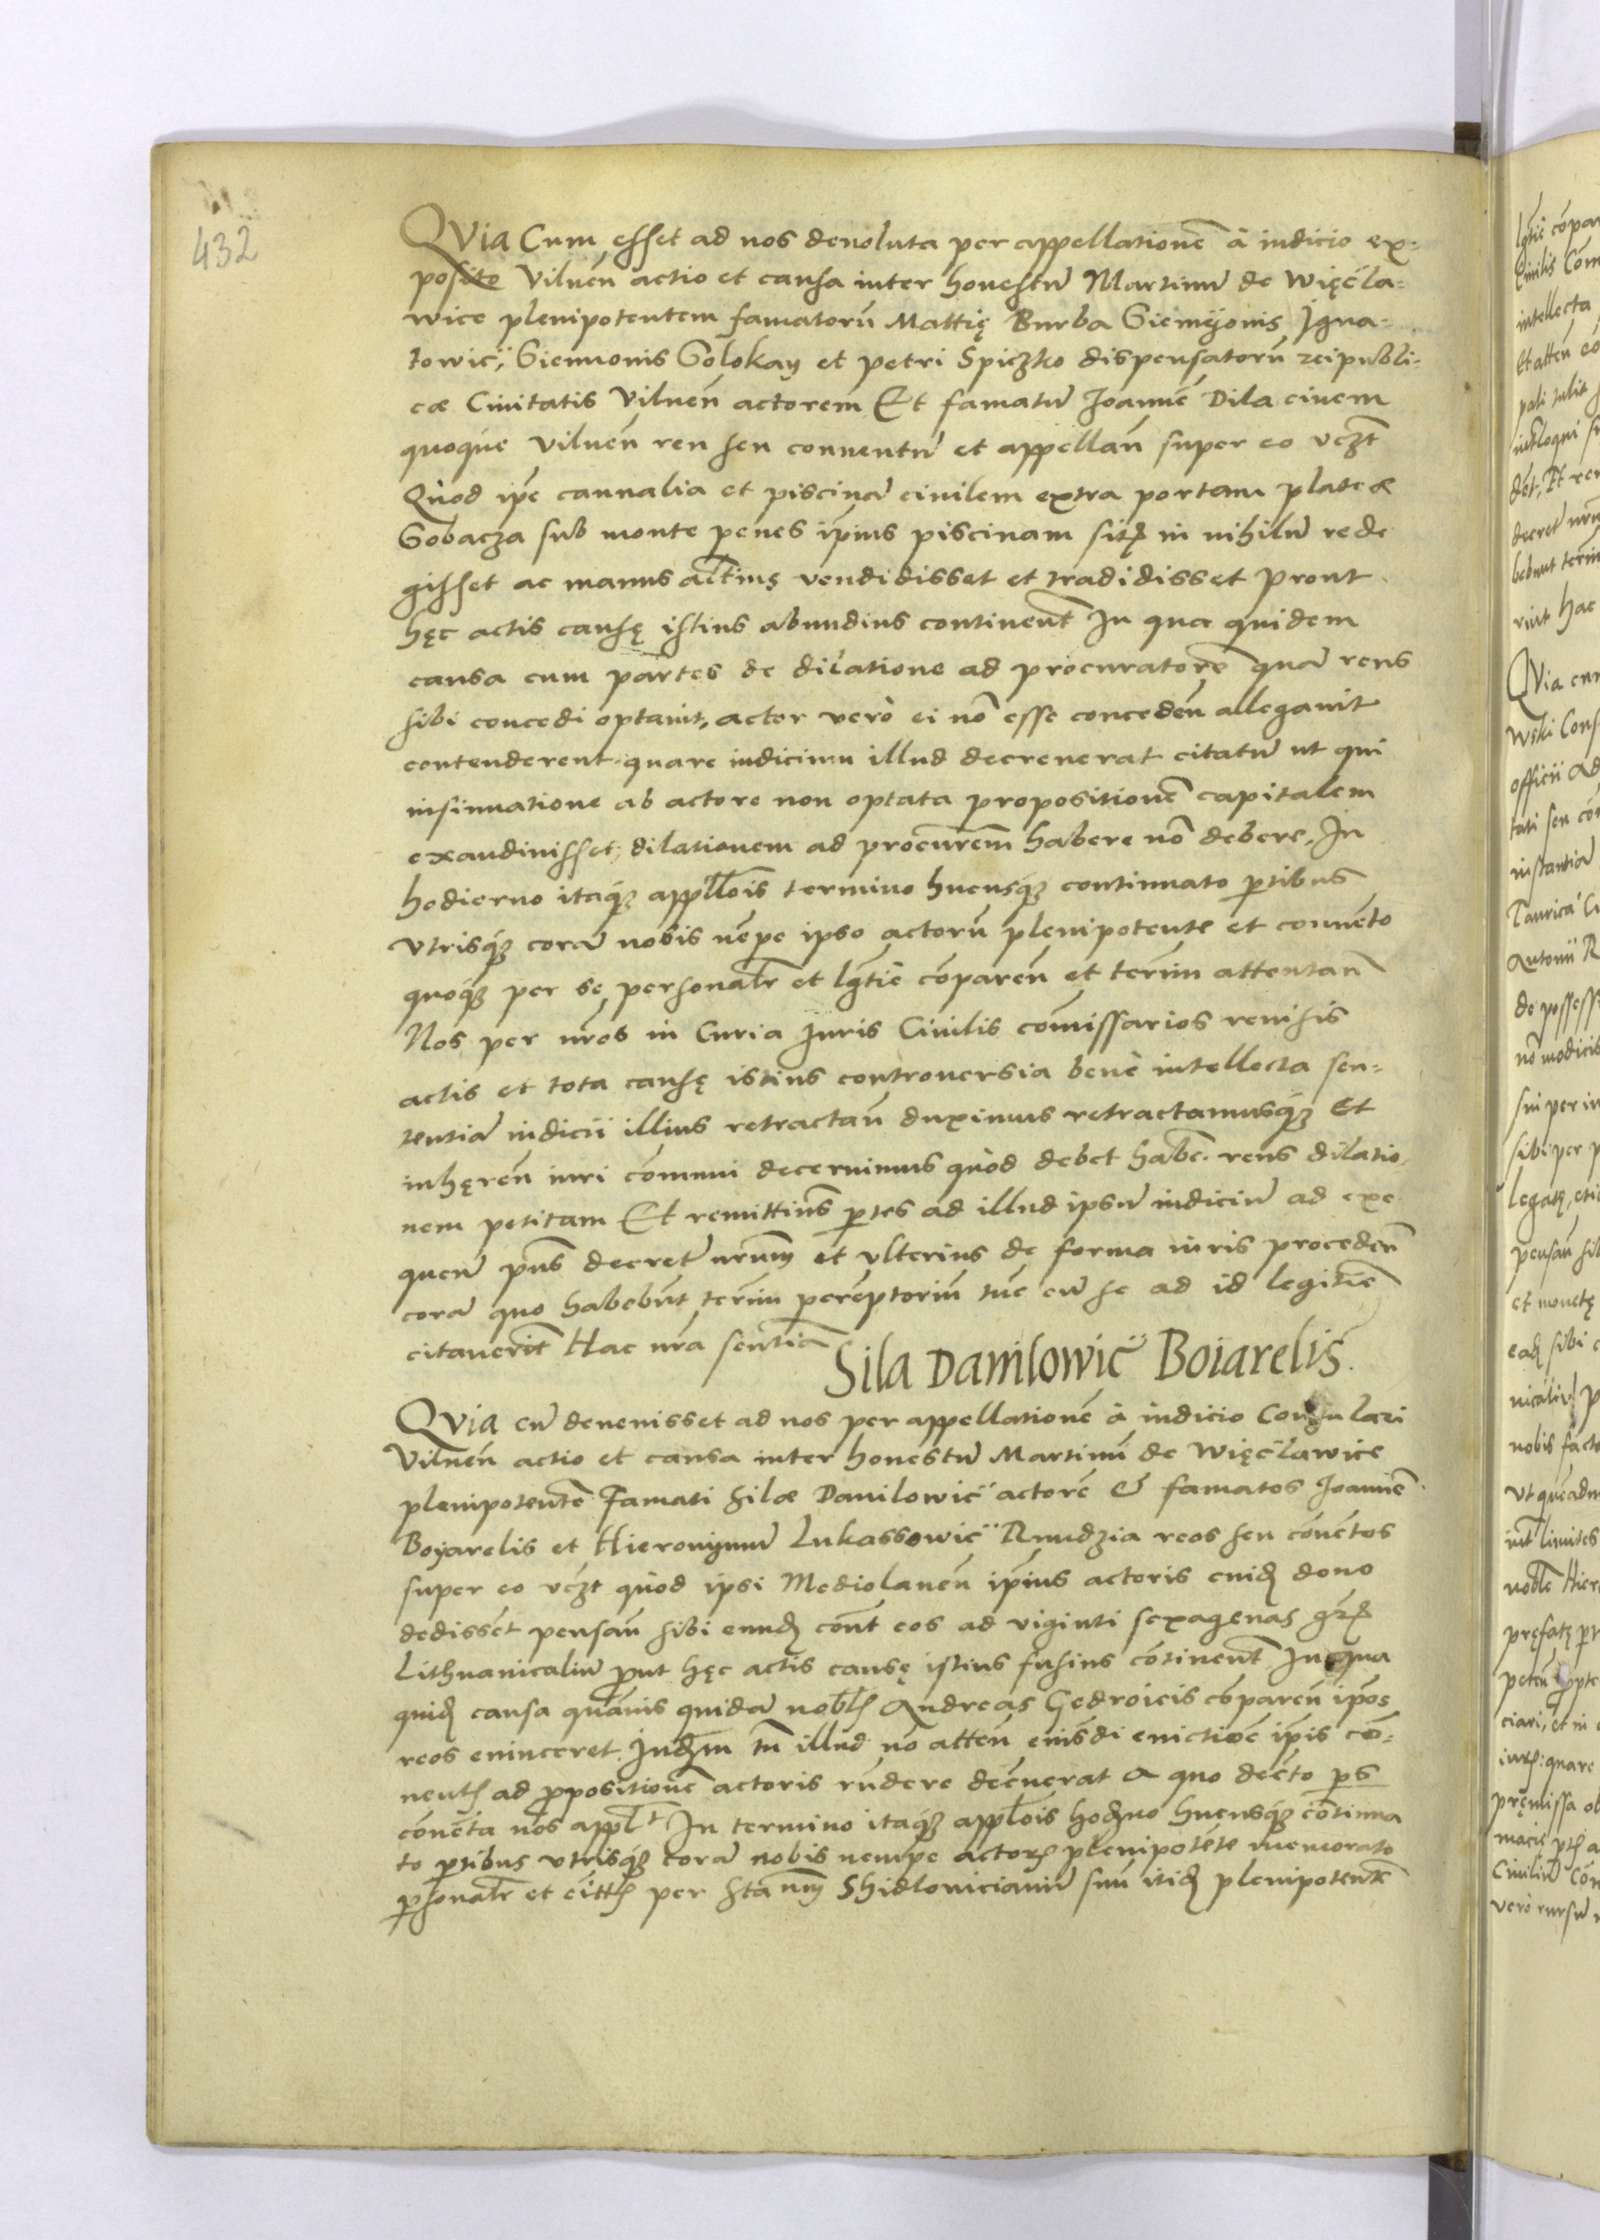 432
QVia Cum esset ad nos deuoluta per appellationē à iudicio ex-
posito Vilneñ actio et causa inter honestū Martinū de Więcla-
wice plenipotentem famatorū Mattię Burba Siemÿonis Jgna-
towic, Siemionis Golokaÿ et Petri Spiczko dispensatorū reipubli-
cæ Ciuitatis Vilneñ actorem Et famatū Joannē Dila ciuem
quoque Vilneñ reū seu conuentū et appellañ super eo vczt
Quod ipē cannalia et piscinā ciuilem extra portam plateæ
Sobacza sub monte penes ipius piscinam sitā in nihilū rede
gisset ac manus alterius vendidisset et tradidisset prout
hęc actis causę istius abundius continent̄ In qua quidem
causa cum partes de dilatione ad procuratorē quā reus
sibi concedi optauit, actor verò ei nō esse concedeñ allegauit
contenderent quare iudicium illud decreuerat citatū ut qui
insinuatione ab actore non optata propositionē capitalem
exaudiuisset, dilationem ad procurem̄ habere nō debere, In
hodierno itaq; appllōis termino hucusq; continuato ptibus
vtrisq; corā nobis nēpe ipso actorū plenipotente et conuēto
quoq; per se personalr et lgtīe cōpareñ et termī attentañ
Nos per nr̄os in Curia Juris Ciuilis cōmissarios reuisis
actis et tota causę istius controuersia benè intellecta sen-
tentiā iudicii illius retractañ duximus retractamusq; Et
inhęreñ iuri cōmuni decernimus quòd debet habē reus dilatio
nem petitam Et remittimꝰ ptes ad illud ipsū iudiciū ad exe
quen̄ pn̄s decretū nrum̄ et vlterius de forma iuris procedeñ
corā quo habebūt termī perēptoriū tūc cū se ad id legitīe
citauerit̄ Hac nr̄a sentētiā
Sila Danilowic̈ Boiarelis.
QVia cū deuenisset ad nos per appellationē à iudicio Consulari
Vilneñ actio et causa inter honestū Martinū de Więclawice
plenipotentē Famati Silæ Danilowic̈ actorē & famatos Joannē
Boÿarelis et Hieronymū Lukassowic̈ Rudzia reos seu cōuētos
super eo vczt quòd ipsi Mediolaneñ ipius actoris cuid dono
dedissēt pensañ sibi eund cont̄ eos ad viginti sexagenas grs
Lithuanicaliū put hęc actis causę istius fusius cōtinent̄ In qua
quid causa quāuis quidā nobls Andreas Gedroicis cōpareñ ipos
reos euinceret Judm tn̄ illud nō atteñ eiusdi euictiōe ipis cō-
uent ad ppositionē actoris rn̄dere decuerat A quo decto ps
cōuēta nos applt In termino itaq; appllōis hodno hucusq; cōtinua
to ptibus vtrisq; corā nobis nempe actors plenipotēte memorato
psonalr et citt per Stanm̄ Shidlouicianū suū itid plenipotentē